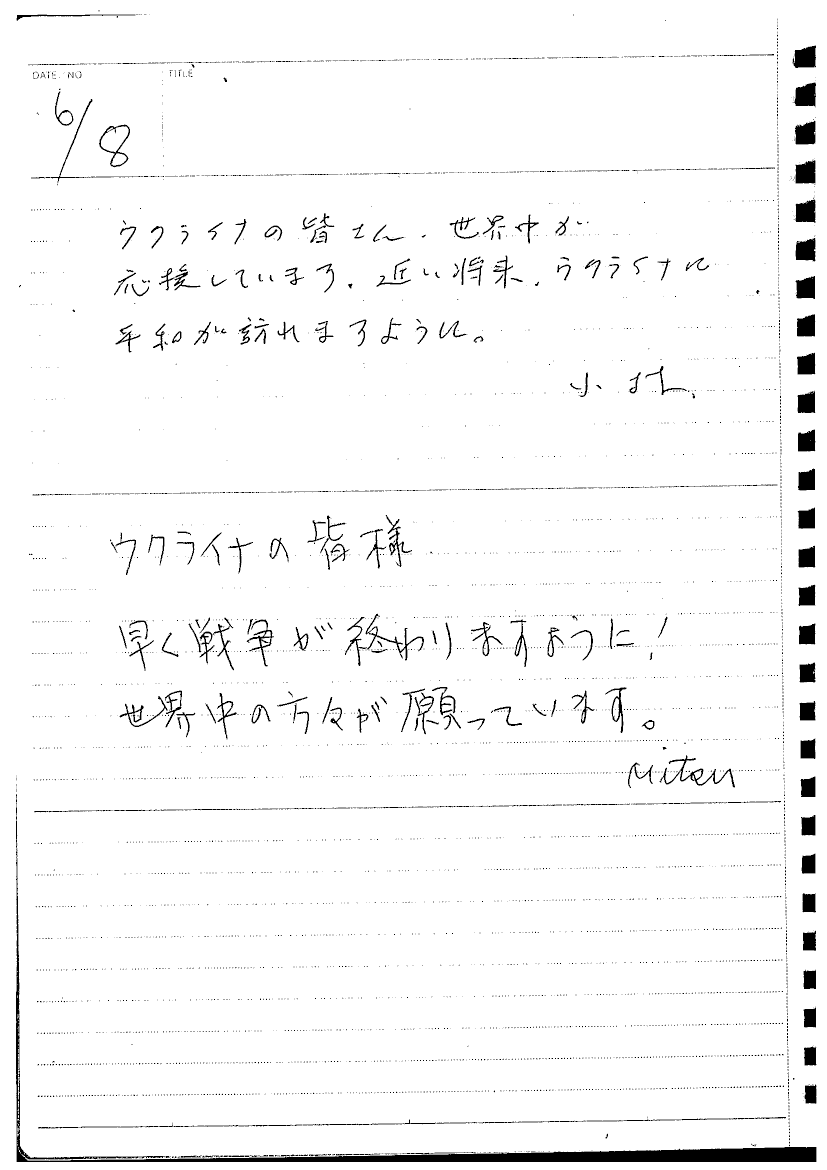 DATE ・ NO
TITLE
6/8
ウクライナの皆さん、世界中が
応援しています。近い将来、ウクライナに
平和が訪れますように。
小林
ウクライナの皆様
早く戦争が終わりますように！
世界中の方々が願っています。